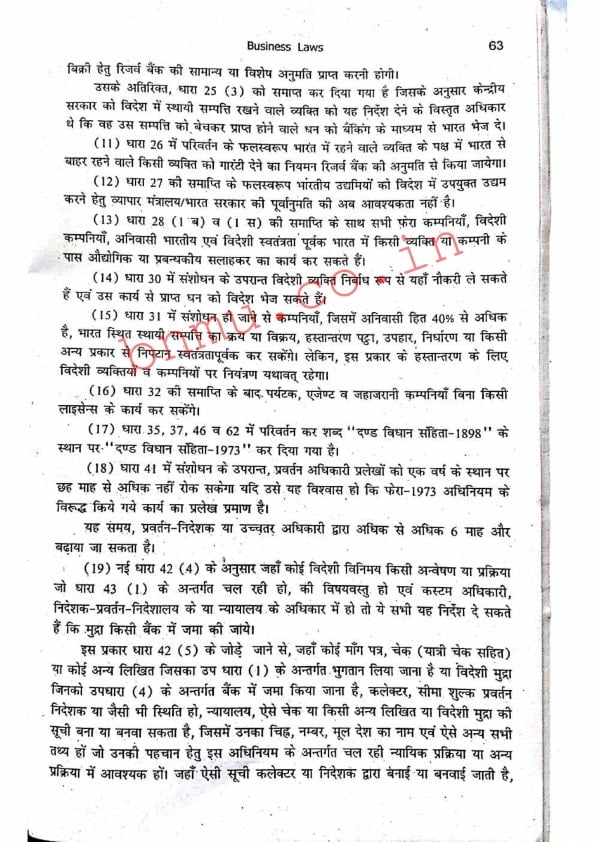 Business Laws 63
बिक्री हेतु रिजर्व बैंक की सामान्य या विशेष अनुमति प्राप्त करनी होगी।
उसके अतिरिक्त, धारा 25 (3) को समाप्त कर दिया गया है जिसके अनुसार केन्द्रीय
सरकार को विदेश में स्थायी सम्पत्ति रखने वाले व्यक्ति को यह निर्देश देने के विस्तृत अधिकार
थे कि वह उस सम्पत्ति को बेचकर प्राप्त होने वाले धन को बैंकिंग के माध्यम से भारत भेज दे।
(11) धारा 26 में परिवर्तन के फलस्वरूप भारत में रहने वाले व्यक्ति के पक्ष में भारत से
बाहर रहने वाले किसी व्यक्ति को गारंटी देने का नियमन रिजर्व बैंक की अनुमति से किया जायेगा।
(12) धारा 27 की समाप्ति के फलस्वरूप भारतीय उद्यमियों को विदेश में उपयुक्त उद्यम
करने हेतु व्यापार मंत्रालय/भारत सरकार की पूर्वानुमति की अब आवश्यकता नहीं है।
(13) धारा 28 (1 ब) व (1 स) की समाप्ति के साथ सभी फेरा कम्पनियाँ, विदेशी
कम्पनियाँ, अनिवासी भारतीय एवं विदेशी स्वतंत्रता पूर्वक भारत में किसी व्यक्ति या कम्पनी के
पास औद्योगिक या प्रबन्धकीय सलाहकर का कार्य कर सकते हैं।
(14) धारा 30 में संशोधन के उपरान्त विदेशी व्यक्ति निर्बाध रूप से यहाँ नौकरी ले सकते
हैं एवं उस कार्य से प्राप्त धन को विदेश भेज सकते हैं।
(15) धारा 31 में संशोधन हो जाने से कम्पनियाँ, जिसमें अनिवासी हित 40% से अधिक
है, भारत स्थित स्थायी सम्पत्ति का क्रय या विक्रय, हस्तान्तरण पट्टा, उपहार, निर्धारण या किसी
अन्य प्रकार से निपटान स्वतंत्रतापूर्वक कर सकेंगे। लेकिन, इस प्रकार के हस्तान्तरण के लिए
विदेशी व्यक्तियों व कम्पनियों पर नियंत्रण यथावत् रहेगा।
(16) धारा 32 की समाप्ति के बाद पर्यटक, एजेण्ट व जहाजरानी कम्पनियाँ बिना किसी
लाइसेन्स के कार्य कर सकेंगे।
(17) धारा 35, 37, 46 व 62 में परिवर्तन कर शब्द "दण्ड विधान संहिता-1898" के
स्थान पर "दण्ड विधान संहिता-1973" कर दिया गया है।
(18) धारा 41 में संशोधन के उपरान्त, प्रवर्तन अधिकारी प्रलेखों को एक वर्ष के स्थान पर
छह माह से अधिक नहीं रोक सकेगा यदि उसे यह विश्वास हो कि फेरा-1973 अधिनियम के
विरूद्ध किये गये कार्य का प्रलेख प्रमाण है।
यह समय, प्रवर्तन-निदेशक या उच्चतर अधिकारी द्वारा अधिक से अधिक 6 माह और
बढ़ाया जा सकता है।
(19) नई धारा 42 (4) के अनुसार जहाँ कोई विदेशी विनिमय किसी अन्वेषण या प्रक्रिया
जो धारा 43 (1) के अन्तर्गत चल रही हो, की विषयवस्तु हो एवं कस्टम अधिकारी,
निदेशक-प्रवर्तन-निदेशालय के या न्यायालय के अधिकार में हो तो ये सभी यह निर्देश दे सकते
हैं कि मुद्रा किसी बैंक में जमा की जांये।
इस प्रकार धारा 42 (5) के जोड़े जाने से, जहाँ कोई माँग पत्र, चेक (यात्री चेक सहित)
या कोई अन्य लिखित जिसका उप धारा (1) के अन्तर्गत भुगतान लिया जाना है या विदेशी मुद्रा
जिनको उपधारा (4) के अन्तर्गत बैंक में जमा किया जाना है, कलेक्टर, सीमा शुल्क प्रवर्तन
निदेशक या जैसी भी स्थिति हो, न्यायालय, ऐसे चेक या किसी अन्य लिखित या विदेशी मुद्रा की
सूची बना या बनवा सकता है, जिसमें उनका चिह्न, नम्बर, मूल देश का नाम एवं ऐसे अन्य सभी
तथ्य हों जो उनकी पहचान हेतु इस अधिनियम के अन्तर्गत चल रही न्यायिक प्रक्रिया या अन्य
प्रक्रिया में आवश्यक हों। जहाँ ऐसी सूची कलेक्टर या निदेशक द्वारा बनाई या बनवाई जाती है,
bnmu.co.in